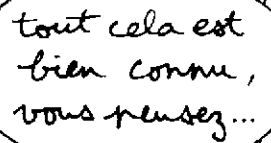 tout cela est
bien connu,
vous pensez...